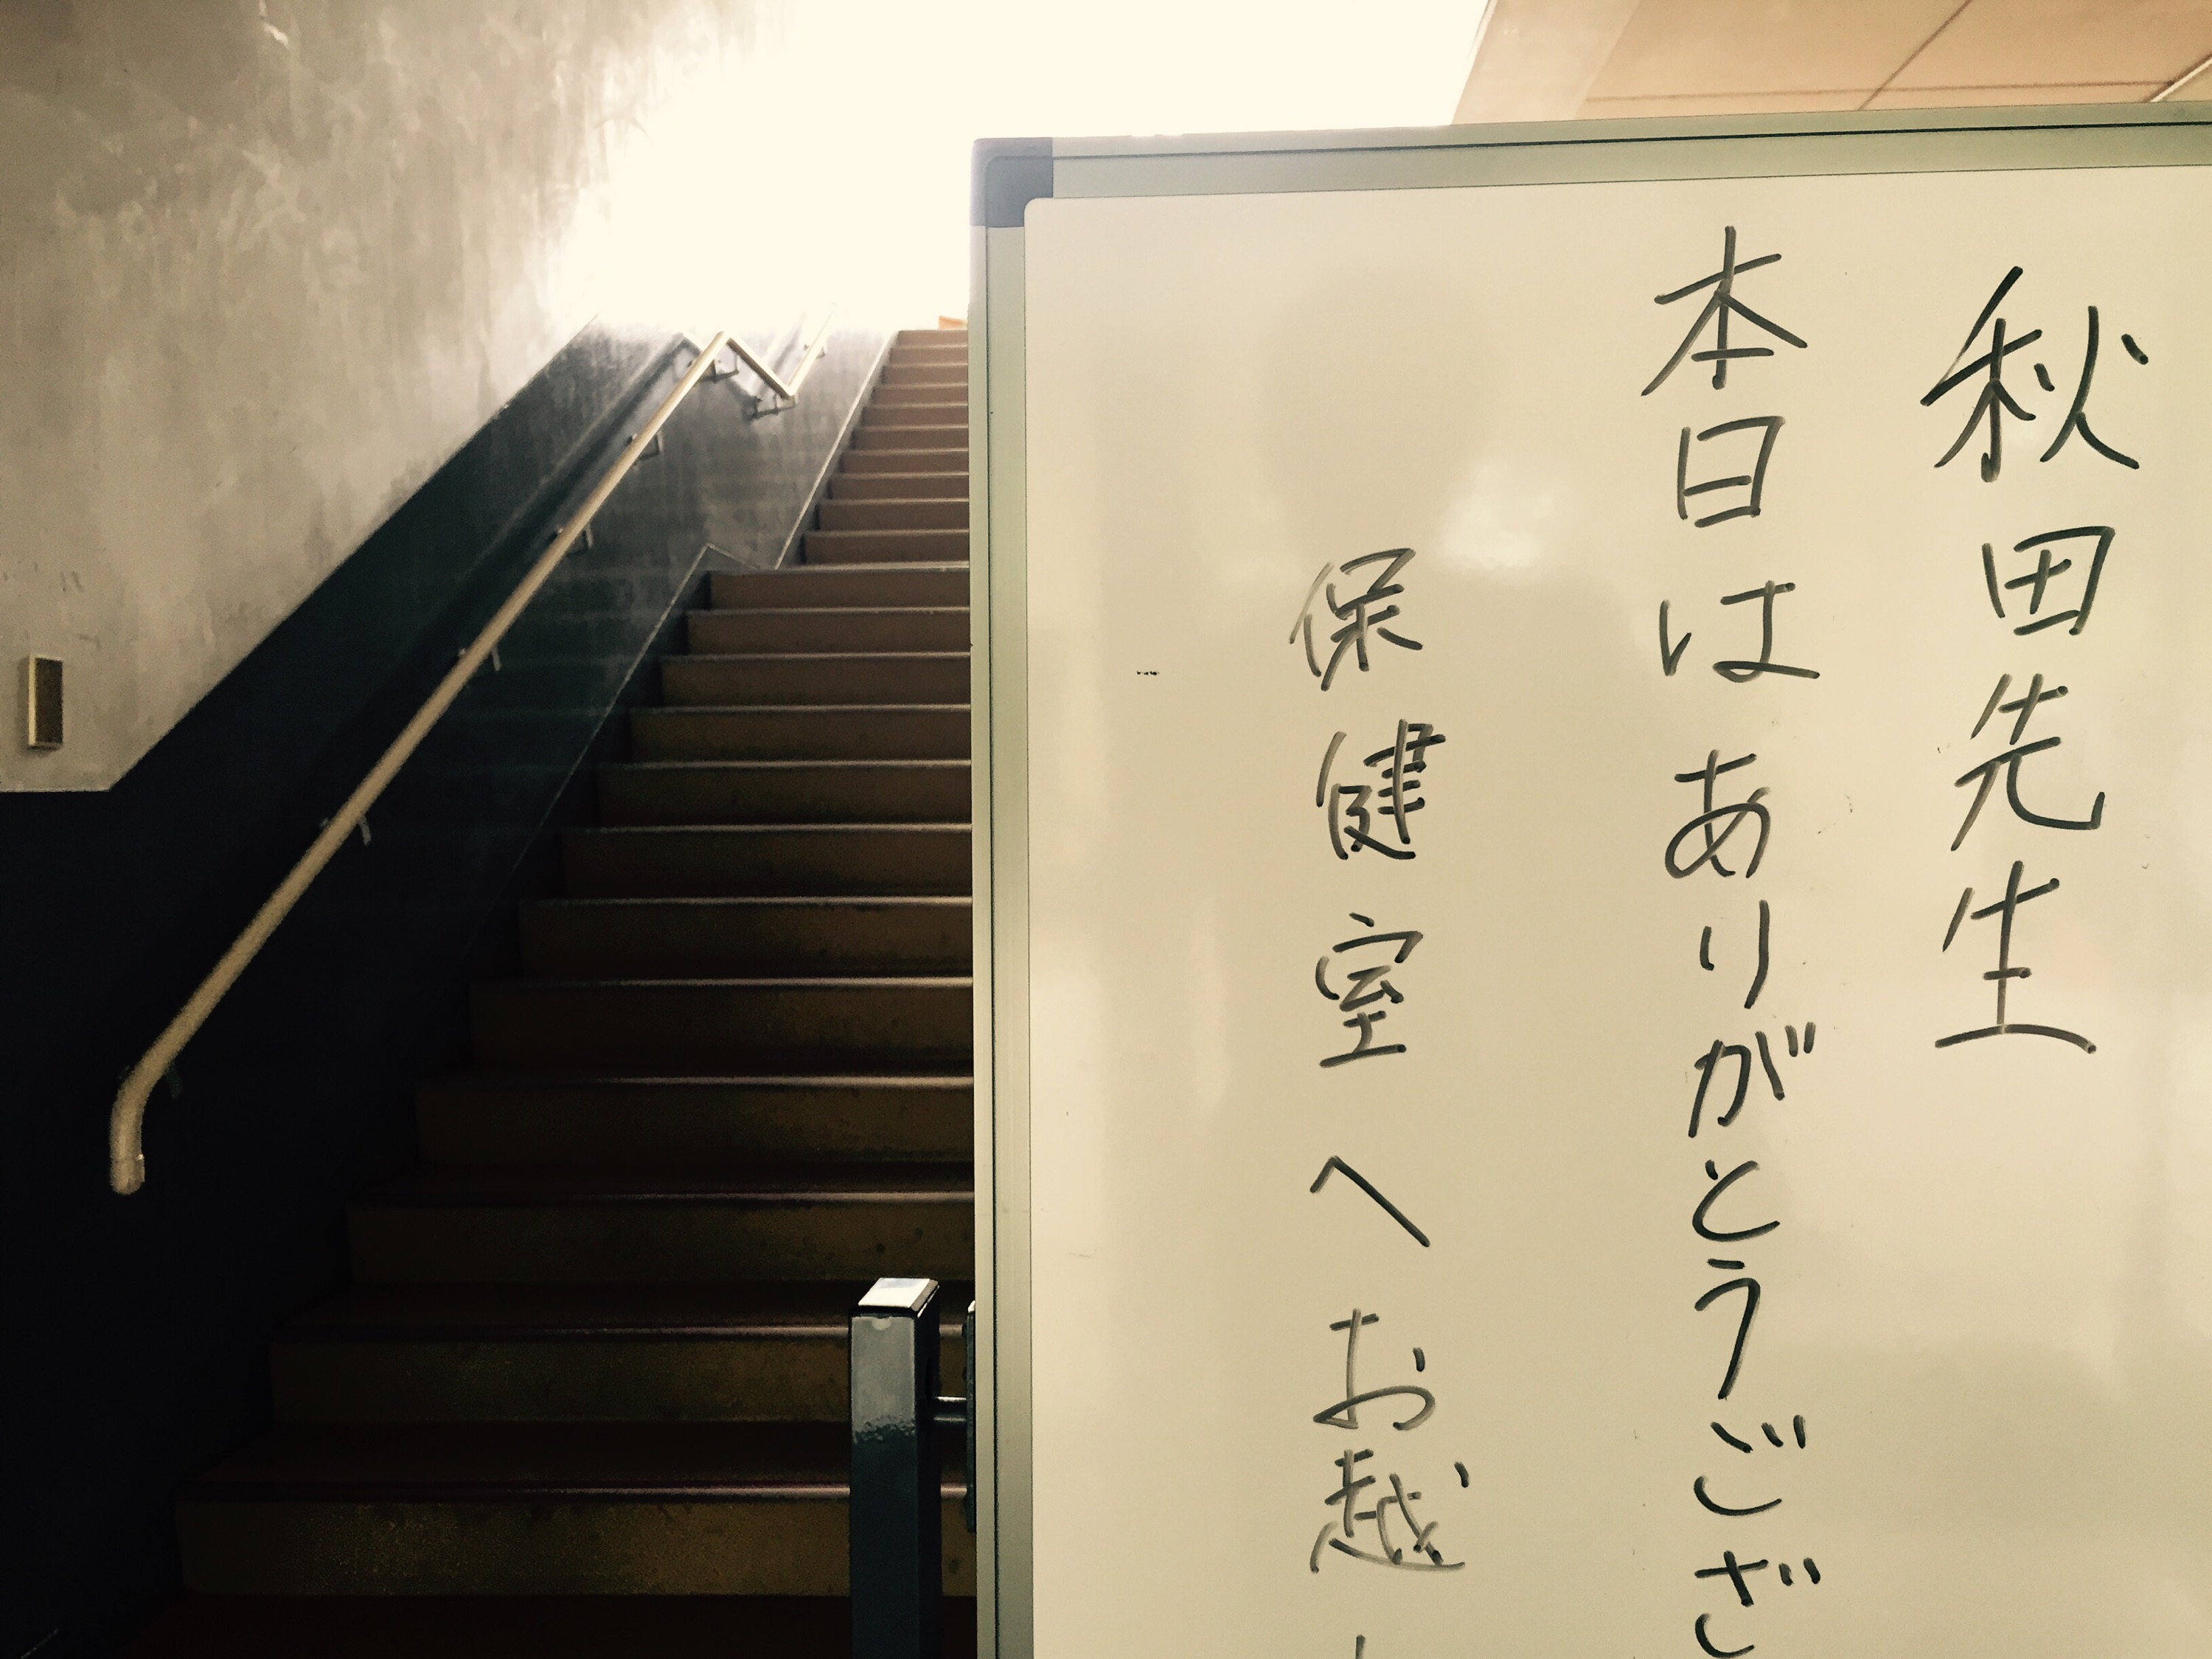 秋田先生
本日はありがとうござ
保健室へお越し